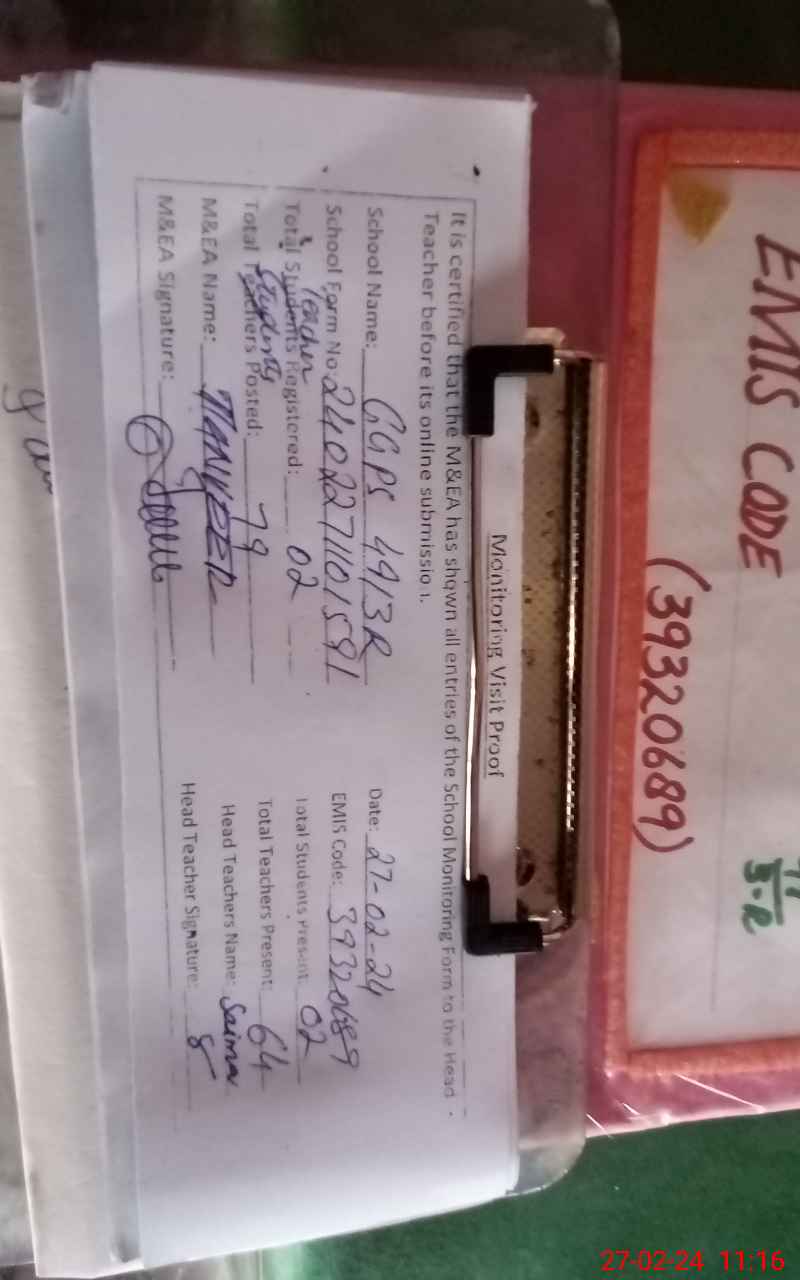 EMIS CODE
(39320689)
3-R
Monitoring Visit Proof
It is certified that the M&EA has shown all entries of the School Monitoring Form to the Head
Teacher before its online submission.
School Name: GGPS 49/3R Date: 27-02-24
School Form No: 2402271101591 EMIS Code: 39320689
Total Students Teacher Registered: 02 Total Students Present: 02
Total Teachers Students Posted: 79 Total Teachers Present: 64
M&EA Name: TANVEER Head Teachers Name: Saima
M&EA Signature: Head Teacher Signature: S
27-02-24 11:16